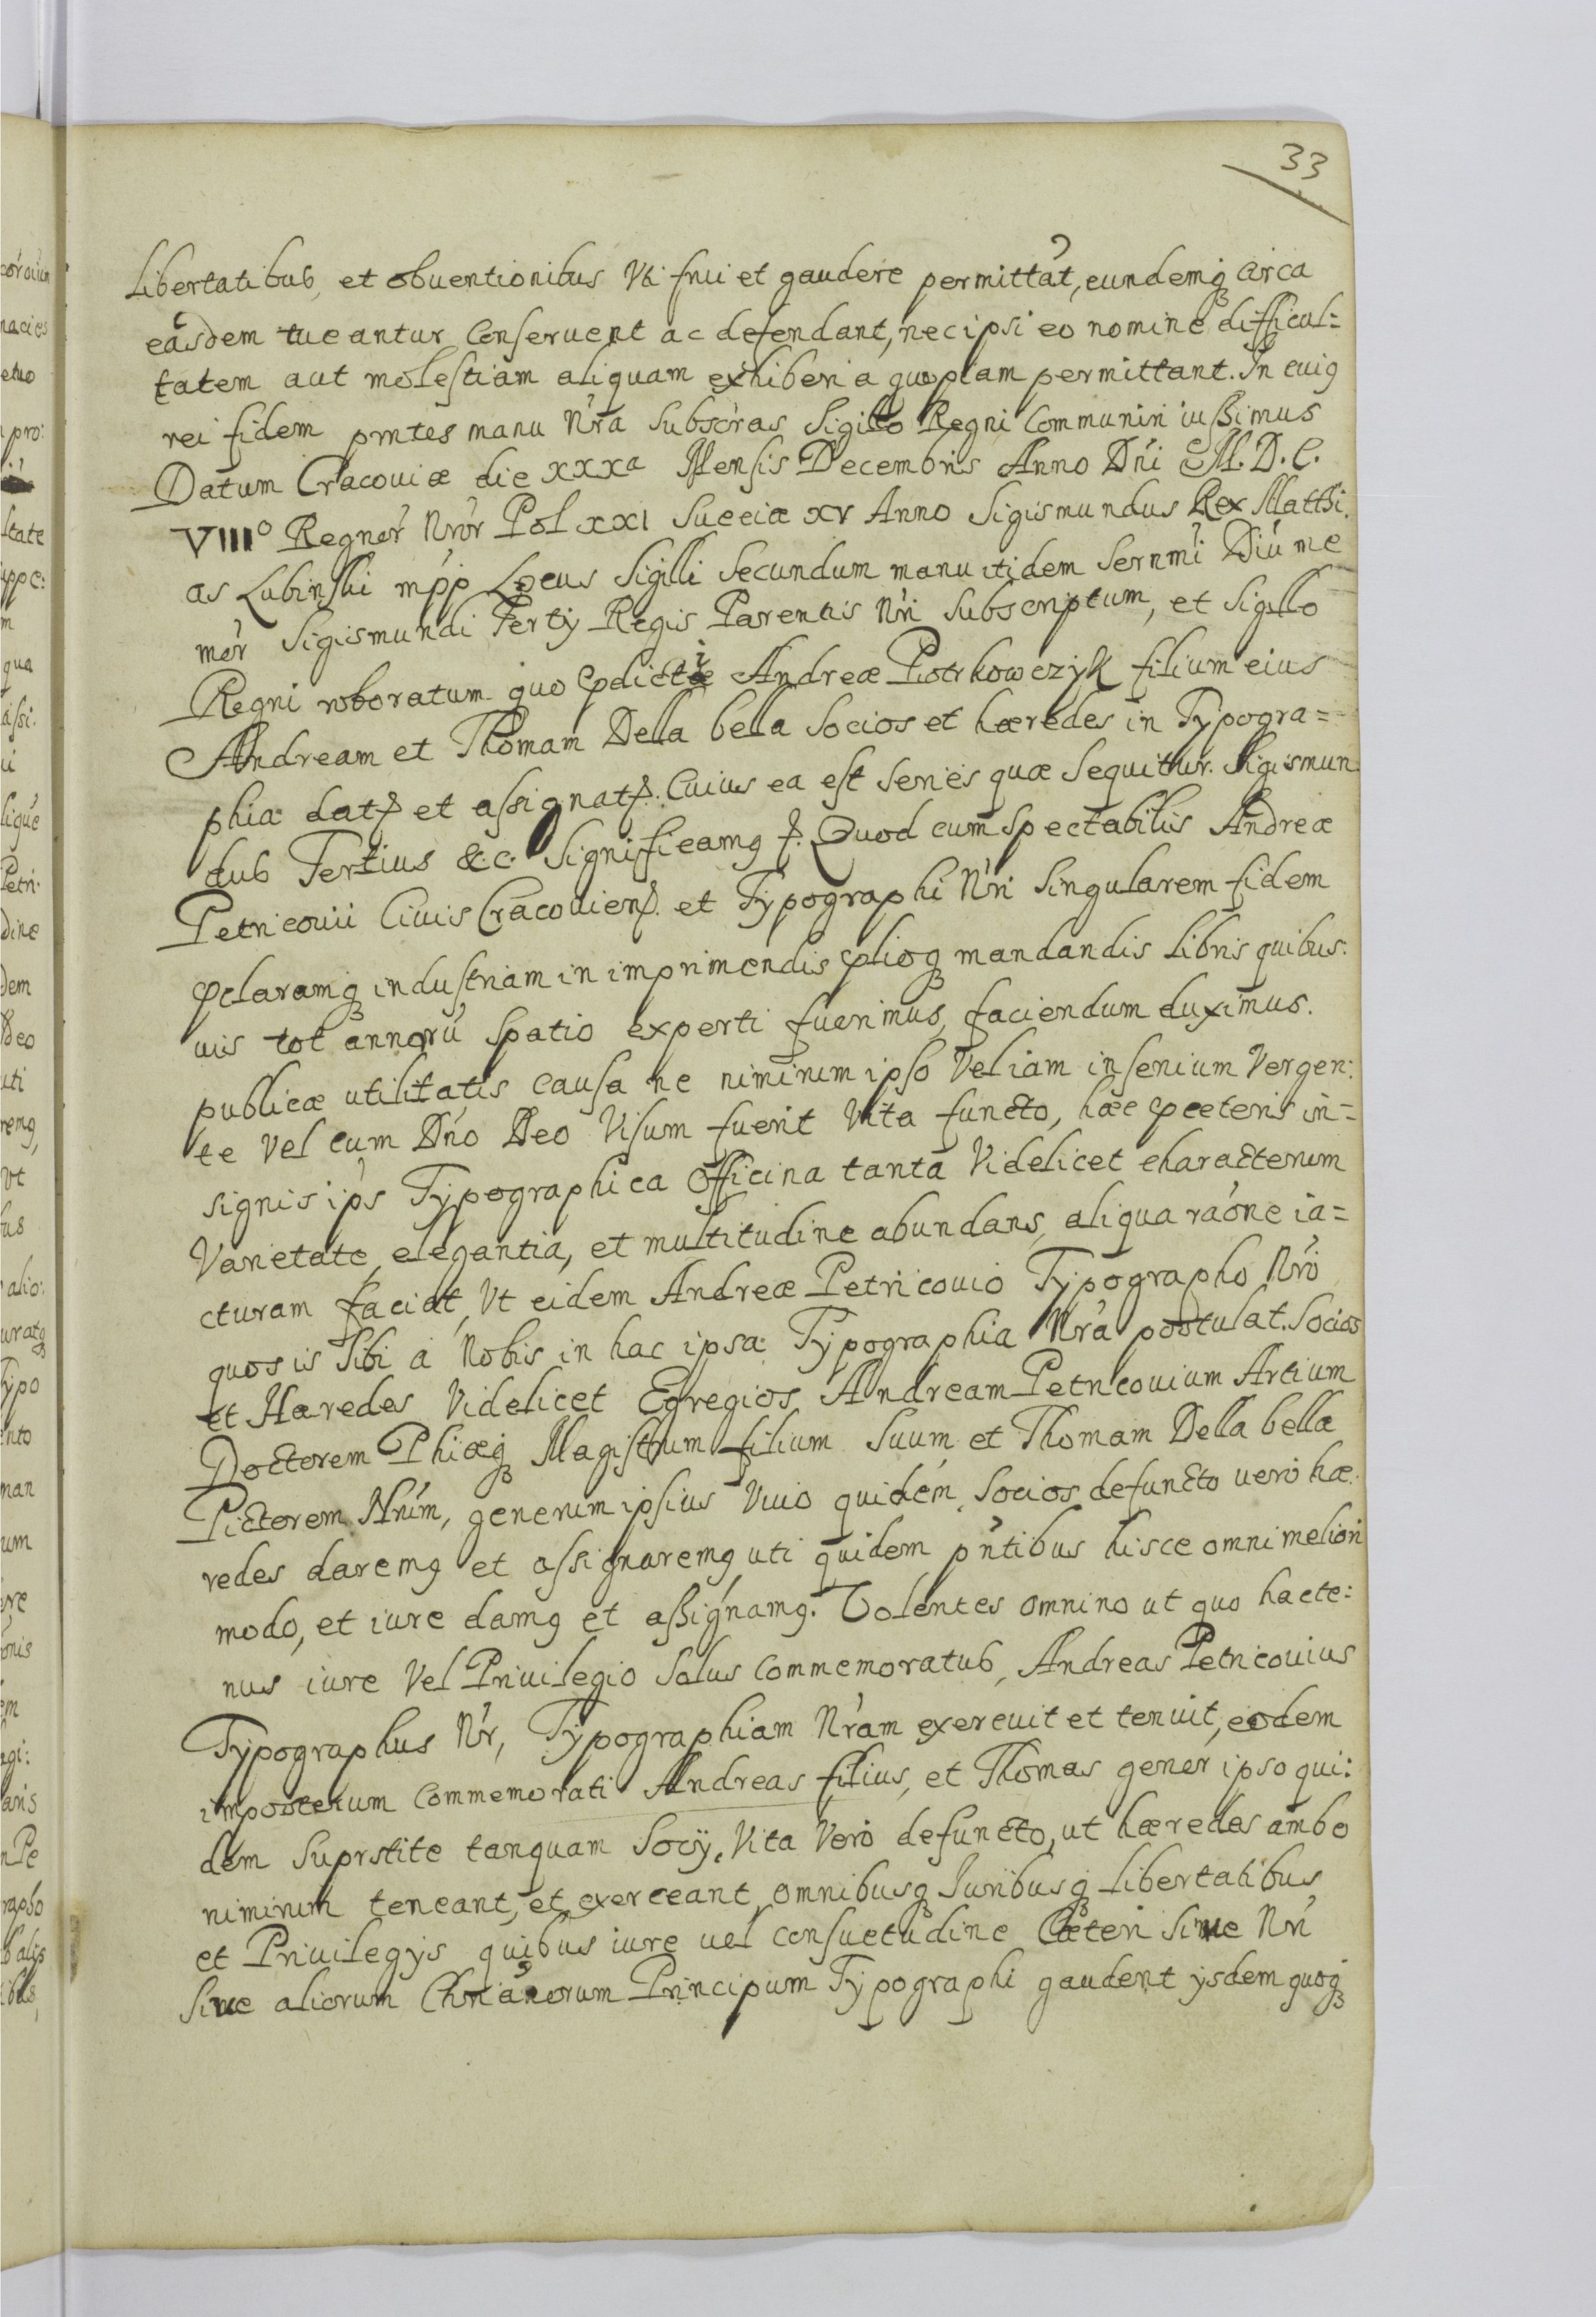 33
Libertatibus, et obuentionibus Vti frui et gaudere permittat, eundemq circa
easdem tueantur Conseruent ac defendant, nec ipsi eo nomine difficul=
tatem aut molestiam aliquam exhiberi a quopiam permittant. In cuig
rei fidem prntes manu Nra Subscras Sigillo Regni Communiri iußimus
Datum Cracouiæ die xxxa Mensis Decembris Anno Dni M.D.C.
VIIIo Regnor Nror Pol xxI Sueciæ xv Anno Sigismundus Rex Matthi.
as Lubinski mpp Locus Sigilli Secundum manu itidem Sernmi Diu me
mor Sigismundi Tertÿ Regis Parentis Nri Subscriptum, et Sigillo
Regni roboratum quo pdicti Andreæ Piotrkowczyk filium eius
Andream et Thomam Della bella Socios et hæredes in Typogra=
phia dat et assignat. Cuius ea est Series quæ Sequitur. Sigismun
dus Tertius &c. Significamg. Quod cum Spectabilis Andreæ
Petricouii Ciuis Cracouien. et Typographi Nri Singularem fidem
pclaramq industriam in imprimendis plioq mandandis Libris quibus:
uis tot annorú Spatio experti fuerimus, faciendum duximus.
publicæ utilitatis causa ne nimirum ipso Vel iam in senium Vergen:
te Vel cum Dno Deo Visum fuerit Vita functo, hæc pceteris in=
signis ips Typographica Officina tanta Videlicet characterum
Varietate, elegantia, et multitudine abundans, aliqua raone ia=
cturam faciat, Vt eidem Andreæ Petricouio Typographo Nro
quos is Sibi á Nobis in hac ipsa Typographia Nra postulat. Socios
et Hæredes Videlicet Egregios Andream Petricouium Artium
Doctorem Phiæq Magistrum filium Suum et Thomam Della bella
Pictorem Nrum, generum ipsius Viuo quidem Socios defuncto uero hæ.
redes daremg et assignaremg uti quidem pntibus hisce omni meliori
modo, et iure damg et aßignamg. Volentes omnino ut quo hacte:
nus iure Vel Priuilegio Solus Commemoratus, Andreas Petricouius
Typographus Nr, Typographiam Nram exercuit et tenuit, eodem
imposterum Commemorati Andreas filius, et Thomas gener ipso qui:
dem Suprstite tanquam Socÿ, Vita Vero defuncto, ut hæredes ambo
nimirum teneant, et exerceant, omnibusq Juribusq Libertatibus
et Priuilegÿs quibus iure uel consuetudine Cæteri Siue Nri
Siue aliorum Chrianorum Principum Typographi gaudent ysdem quoq